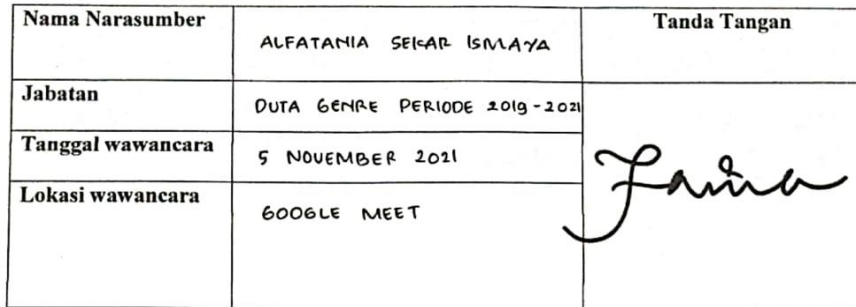 Nama Narasumber
ALFATANIA SEKAR ISMAYA
Tanda Tangan
Jabatan
DUTA GENRE PERIODE 2019-2021
Tanggal wawancara
5 NOVEMBER 2021
Lokasi wawancara
GOOGLE MEET